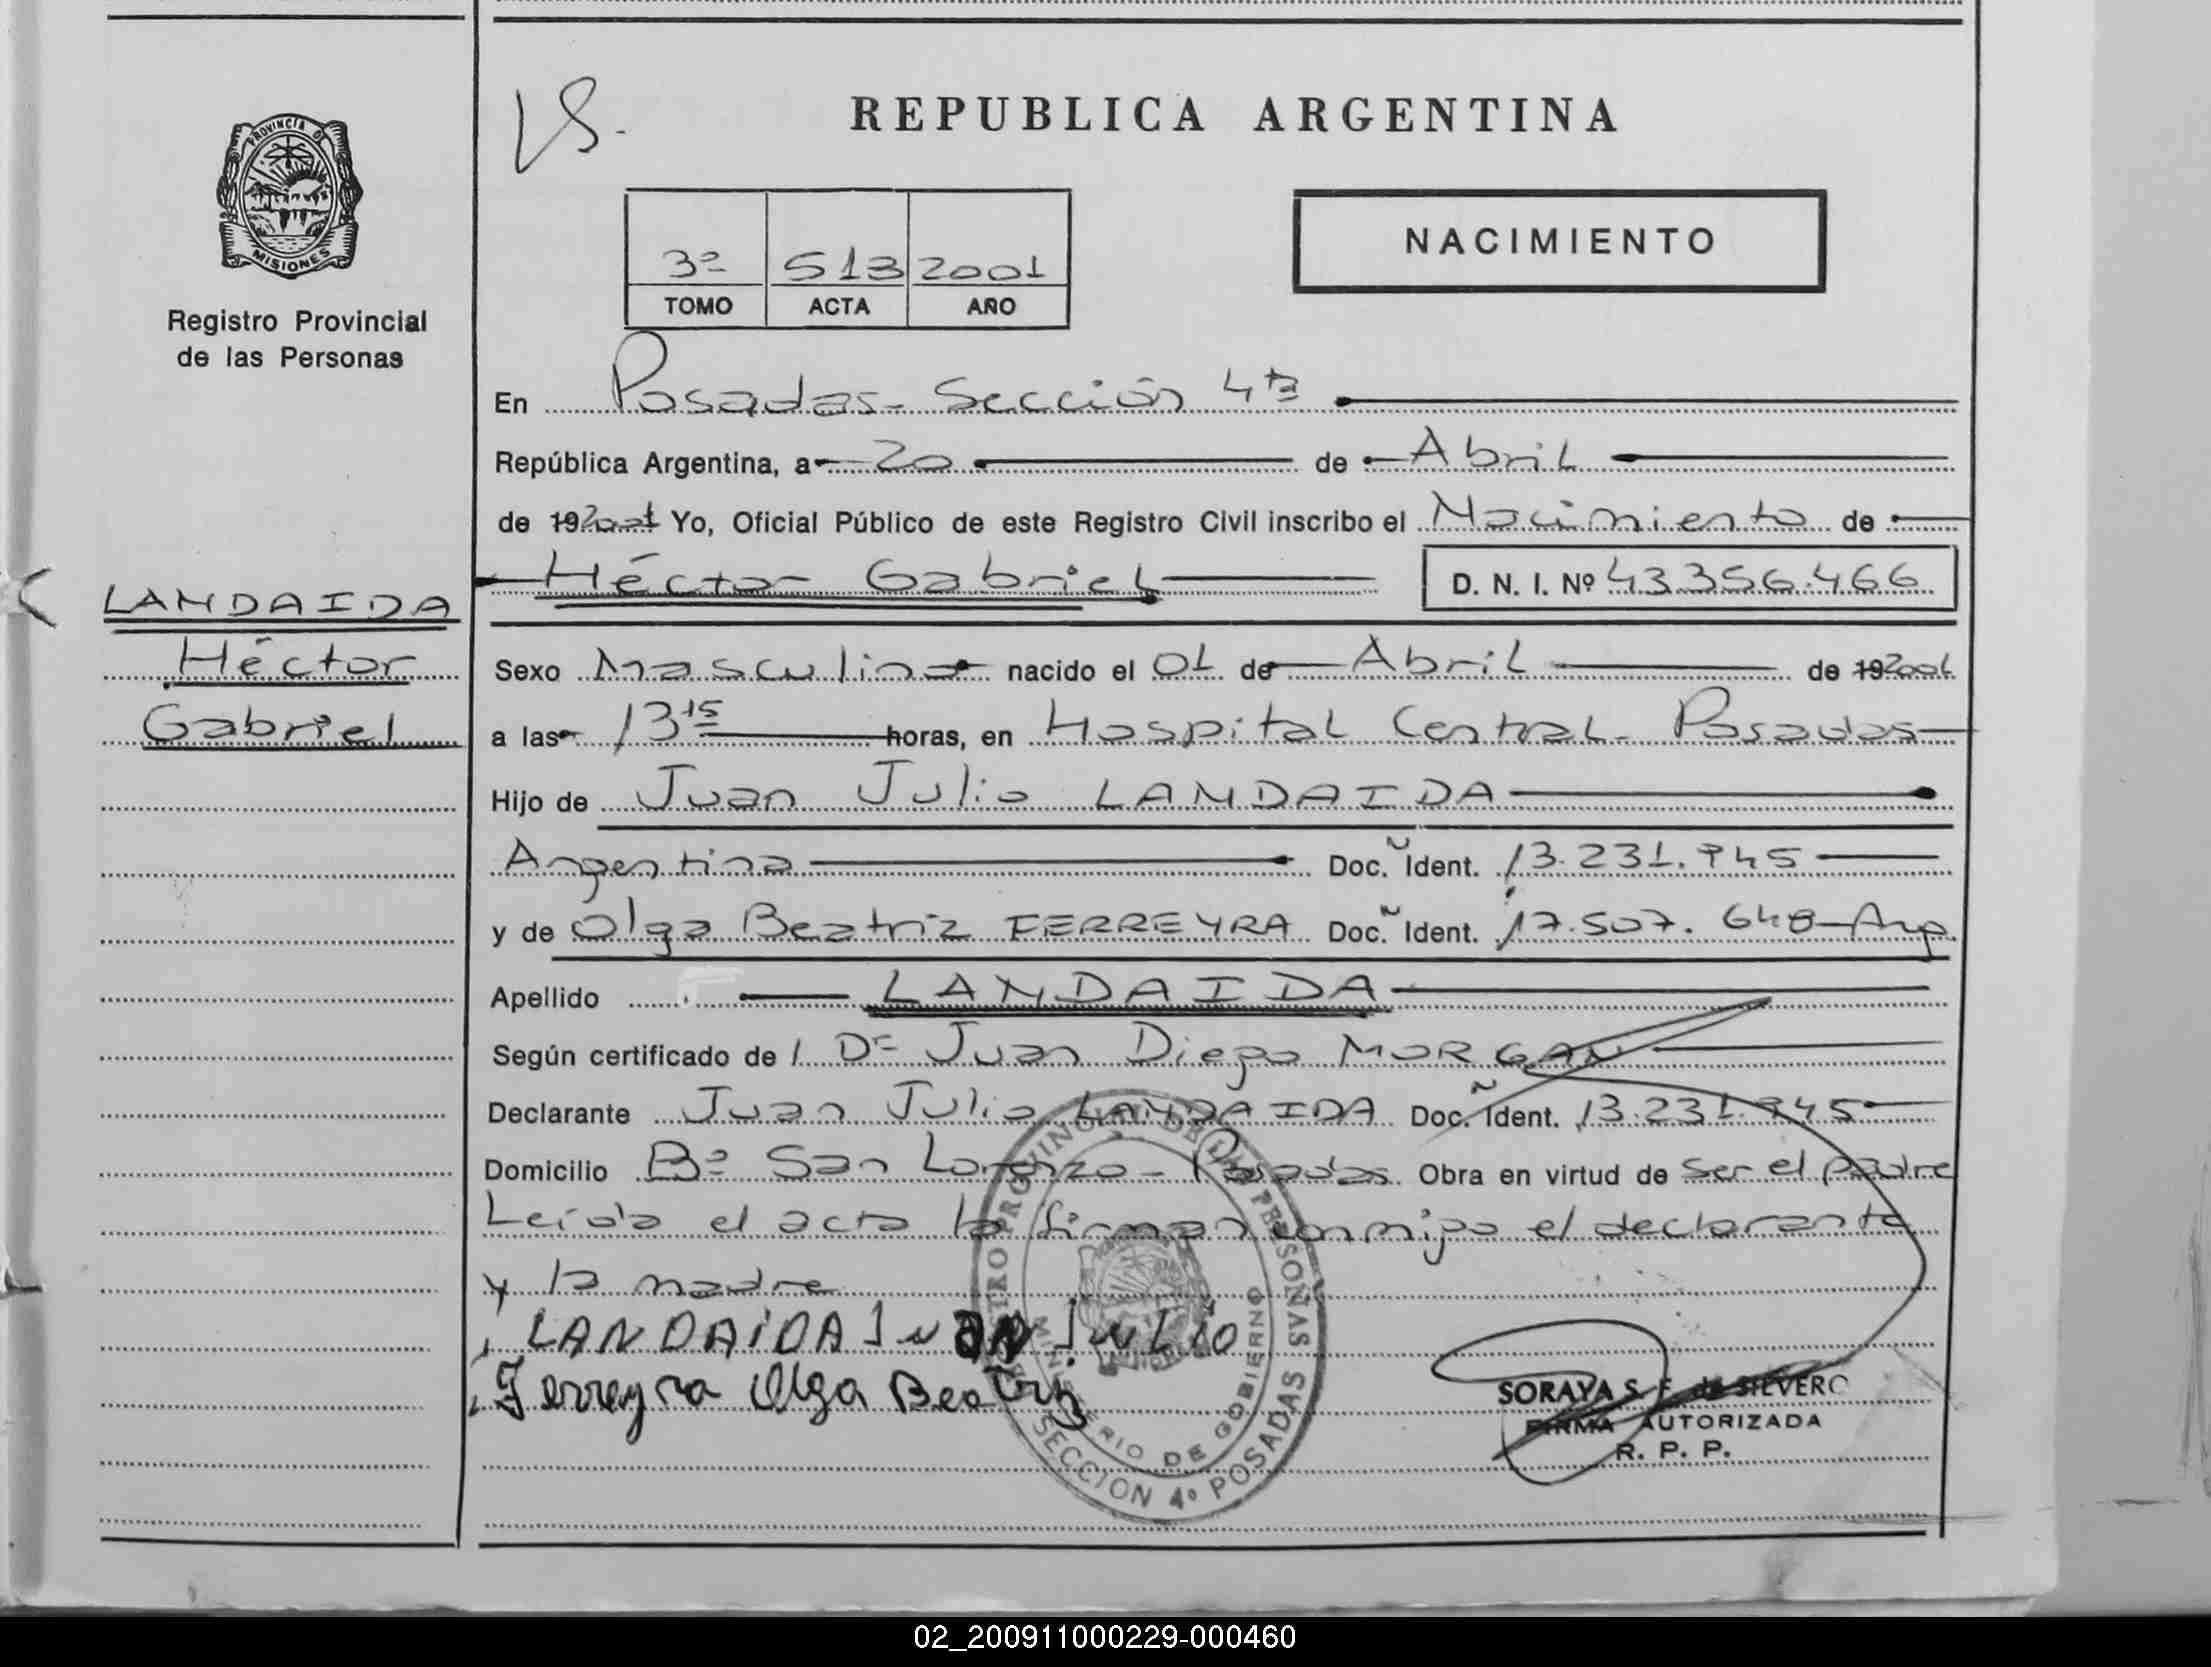 VS.
REPUBLICA ARGENTINA
PROVINCIA D
MISIONES
Registro Provincial
de las Personas
NACIMIENTO
3º 513 2001
TOMO ACTA AÑO
En Posadas - Sección 4ta
República Argentina, a 20 de Abril
de 19 2001 Yo, Oficial Público de este Registro Civil inscribo el Nacimiento de
Héctor Gabriel D. N. I. Nº 43.356.466
LANDAIDA
Héctor
Gabriel
Sexo Masculino nacido el 01 de Abril de 19 2001
a las 13 15 horas, en Hospital Central - Posadas
Hijo de Juan Julio LANDAIDA
Argentina Doc. Ident. 13.231.945
y de Olga Beatriz FERREYRA Doc. Ident. 17.507.648 - Arg.
Apellido LANDAIDA
Según certificado de Dr Juan Diego MORGAN
Declarante Juan Julio LANDAIDA Doc. Ident. 13.231.945
Domicilio Bº San Lorenzo - Posadas Obra en virtud de ser el padre
Leída el acta la firman conmigo el declarante
y la madre
LANDAIDA Juan Julio
Ferreyra Olga Beatriz
REGISTRO PROVINCIAL DE LAS PERSONAS
MINISTERIO DE GOBIERNO
SECCION 4º POSADAS
SORAYA S. F. de SILVERO
FIRMA AUTORIZADA
R. P. P.
02_200911000229-000460